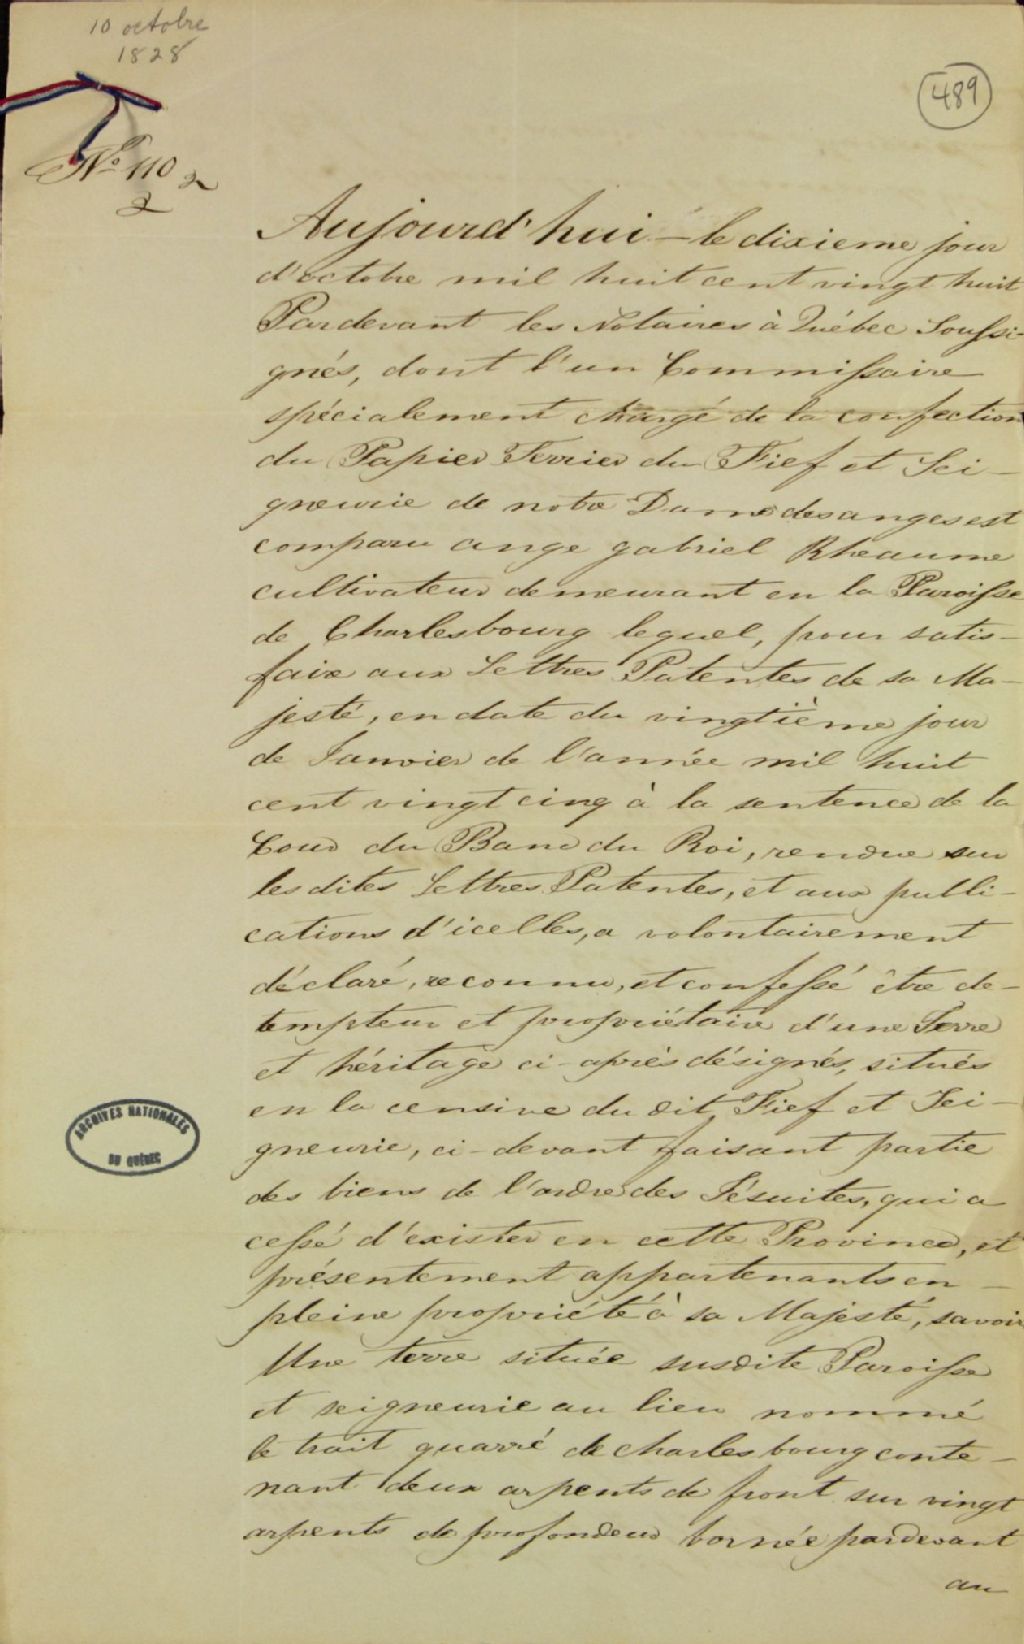 10 octobre
1828
489
No. 110
2
Aujourd'hui - le dixieme jour
d'octobre mil huit cent vingt huit
Pardevant les Notaires à Québec Soussi-
gnés, dont l'un Commissaire
spécialement chargé de la confection
du Papier Terrier du Fief et Sei-
gneurie de notre Dame des anges est
comparu ange gabriel Rheaume
cultivateur demeurant en la Paroisse
de Charlesbourg lequel, pour satis-
faire aux Lettres Patentes de sa Ma-
jesté, en date du vingtième jour
de Janvier de l'année mil huit
cent vingt cinq à la sentence de la
Cour du Banc du Roi, rendue sur
les dites Lettres Patentes, et aux publi-
cations d'icelles, a volontairement
déclaré, reconnu, et confessé être de-
tempteur et propriétaire d'une Terre
et héritage ci-après désignés, situés
en la censive du dit Fief et Sei-
gneurie, ci-devant faisant partie
des biens de l'ordre des Jésuites, qui a
cessé d'exister en cette Province, et
présentement appartenants en
pleine propriété à sa Majesté, savoir
Une terre située susdite Paroisse
et seigneurie au lieu nommé
le trait quarré de Charlesbourg conte-
nant deux arpents de front sur vingt
arpents de profondeur bornée pardevant
au
ARCHIVES NATIONALES
DU QUÉBEC